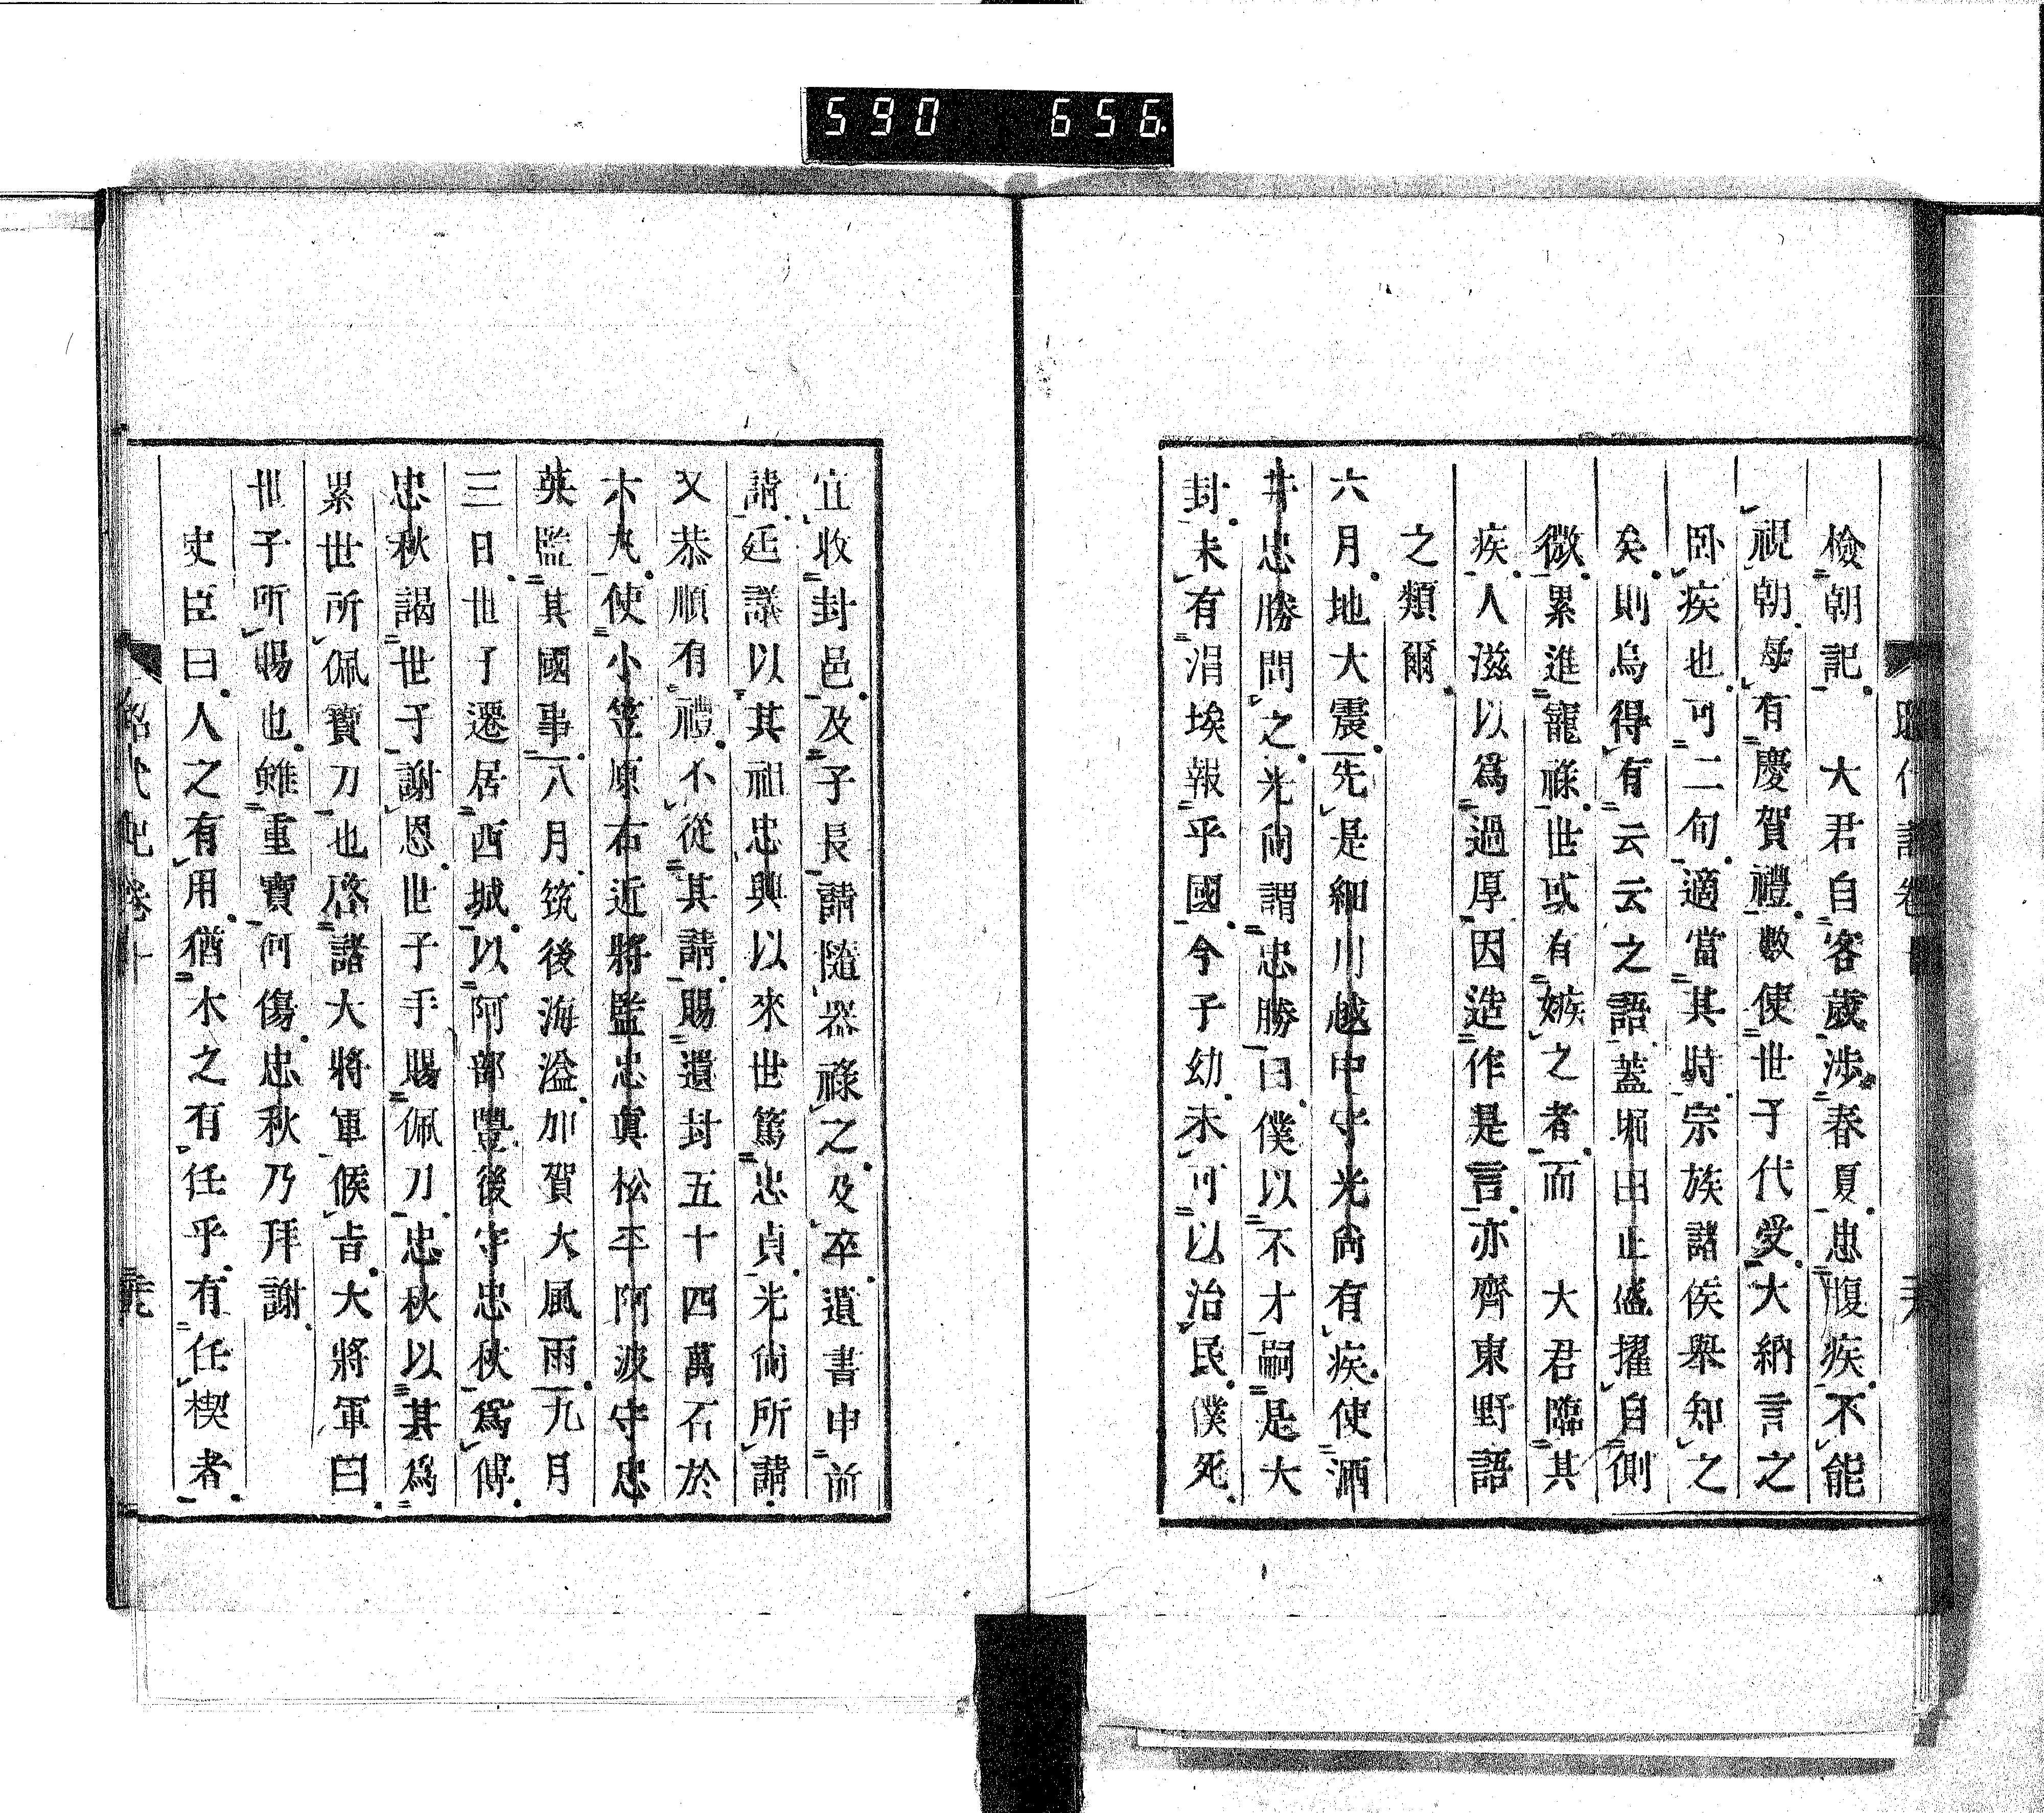 590 656
檢朝記 大君自客歲涉春夏患腹疾不能
視朝每有慶賀禮數使世子代受大納言之
卧疾也可二旬適當其時宗族諸侯舉知之
矣則烏得有云云之語蓋堀田正盛擢自側
微累進寵祿世或有嫉之者而 大君臨其
疾人滋以爲過厚因造作是言亦齊東野語
之類爾
六月地大震先是細川越中守光尚有疾使酒
井忠勝問之光尚謂忠勝曰僕以不才嗣是大
封未有涓埃報乎國今子幼未可以治民僕死
宜收封邑及子長請隨器祿之及卒遺書申前
請廷議以其祖忠興以來世篤忠貞光尚所請
又恭順有禮不從其請賜遺封五十四萬石於
六丸使小笠原右近將監忠眞松平阿波守忠
英監其國事八月筑後海溢加賀大風雨九月
三日世子遷居西城以阿部豐後守忠秋爲傅
忠秋謁世子謝恩世子手賜佩刀忠秋以其爲
累世所佩寶刀也啓諸大將軍候旨大將軍曰
世子所賜也雖重寶何傷忠秋乃拜謝
史臣曰人之有用猶木之有任乎有任楔者